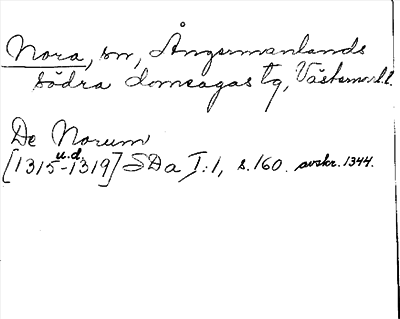 Nora, sn, Ångermanlands
södra domsagas tg, Västernorrl. l.
De Norum
[1315-1319] u.d. SDa I:1, s. 160. avskr. 1344.